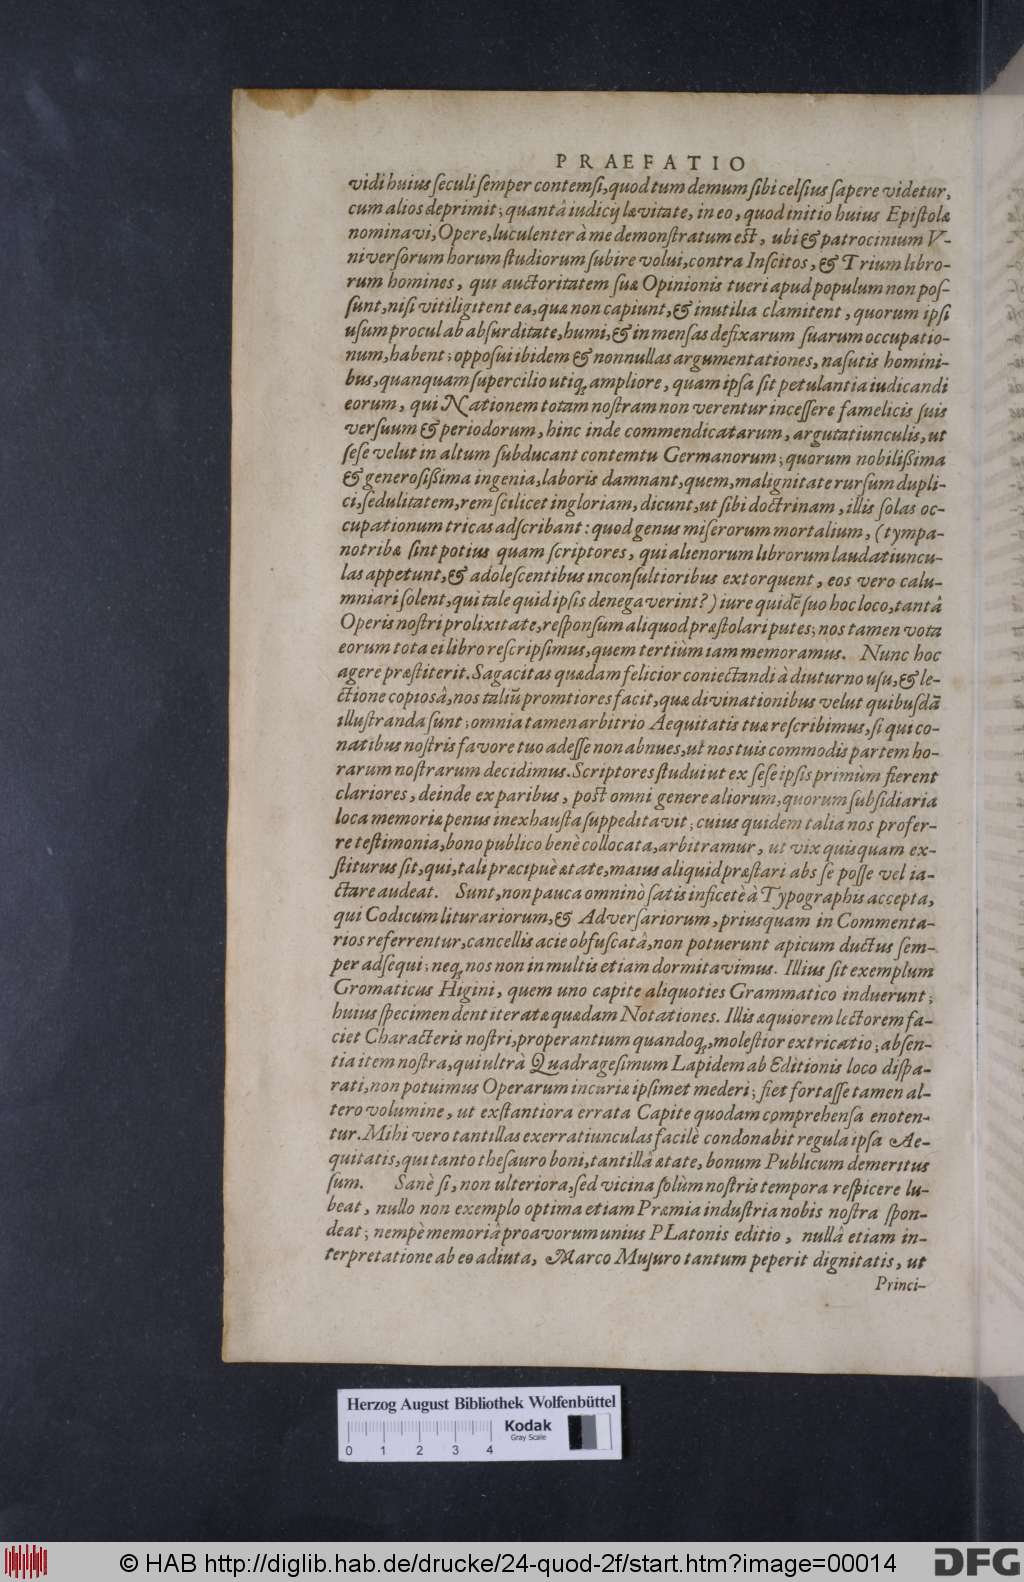 PRAEFATIO
vidi huius seculi semper contemsi, quod tum demum sibi celsius sapere videtur,
cum alios deprimit; quantâ iudicij lævitate, in eo, quod initio huius Epistolæ
nominavi, Opere, luculenter à me demonstratum est, ubi & patrocinium V-
niversorum horum studiorum subire volui, contra Inscitos, & Trium libro-
rum homines, qui auctoritatem suæ Opinionis tueri apud populum non pos-
sunt, nisi vitiligitent ea, quæ non capiunt, & inutilia clamitent, quorum ipsi
usum procul ab absurditate, humi, & in mensas defixarum suarum occupatio-
num, habent; opposui ibidem & nonnullas argumentationes, nasutis homini-
bus, quanquam supercilio utiq, ampliore, quam ipsa sit petulantia iudicandi
eorum, qui Nationem totam nostram non verentur incessere famelicis suis
versuum & periodorum, hinc inde commendicatarum, argutatiunculis, ut
sese velut in altum subducant contemtu Germanorum; quorum nobilißima
& generosißima ingenia, laboris damnant, quem, malignitate rursum dupli-
ci, sedulitatem, rem scilicet ingloriam, dicunt, ut sibi doctrinam, illis solas oc-
cupationum tricas adscribant: quod genus miserorum mortalium, (tympa-
notribæ sint potius quam scriptores, qui alienorum librorum laudatiuncu-
las appetunt, & adolescentibus inconsultioribus extorquent, eos vero calu-
mniari solent, qui tale quid ipsis denegaverint?) iure quidē suo hoc loco, tantâ
Operis nostri prolixitate, responsum aliquod præstolari putes; nos tamen vota
eorum tota ei libro rescripsimus, quem tertiùm iam memoramus. Nunc hoc
agere præstiterit. Sagacitas quædam felicior coniectandi à diuturno usu, & le-
ctione copiosâ, nos taliū promtiores facit, quæ divinationibus velut quibusdā
illustranda sunt; omnia tamen arbitrio Aequitatis tuæ rescribimus, si qui co-
natibus nostris favore tuo adesse non abnues, ut nos tuis commodis partem ho-
rarum nostrarum decidimus. Scriptores studui ut ex sese ipsis primùm fierent
clariores, deinde ex paribus, post omni genere aliorum, quorum subsidiaria
loca memoriæ penus inexhausta suppeditavit; cuius quidem talia nos profer-
re testimonia, bono publico benè collocata, arbitramur, ut vix quisquam ex-
stiturus sit, qui, tali præcipuè ætate, maius aliquid præstari abs se posse vel ia-
ctare audeat. Sunt, non pauca omninò satis inficetè à Typographis accepta,
qui Codicum liturariorum, & Adversariorum, priusquam in Commenta-
rios referrentur, cancellis acie obfuscatâ, non potuerunt apicum ductus sem-
per adsequi; neq, nos non in multis etiam dormitavimus. Illius sit exemplum
Gromaticus Higini, quem uno capite aliquoties Grammatico induerunt;
huius specimen dent iteratæ quædam Notationes. Illis æquiorem lectorem fa-
ciet Characteris nostri, properantium quandoq, molestior extricatio; absen-
tia item nostra, qui ultrà Quadragesimum Lapidem ab Editionis loco dispa-
rati, non potuimus Operarum incuriæ ipsimet mederi; fiet fortasse tamen al-
tero volumine, ut exstantiora errata Capite quodam comprehensa enoten-
tur. Mihi vero tantillas exerratiunculas facilè condonabit regula ipsa Ae-
quitatis, qui tanto thesauro boni, tantillâ ætate, bonum Publicum demeritus
sum. Sanè si, non ulteriora, sed vicina solùm nostris tempora respicere lu-
beat, nullo non exemplo optima etiam Præmia industria nobis nostra spon-
deat; nempè memoriâ proavorum unius PLatonis editio, nullâ etiam in-
terpretatione ab eo adiuta, Marco Musuro tantum peperit dignitatis, ut
Princi-
Herzog August Bibliothek Wolfenbüttel
Kodak
Gray Scale
0 1 2 3 4
© HAB http://diglib.hab.de/drucke/24-quod-2f/start.htm?image=00014
DFG